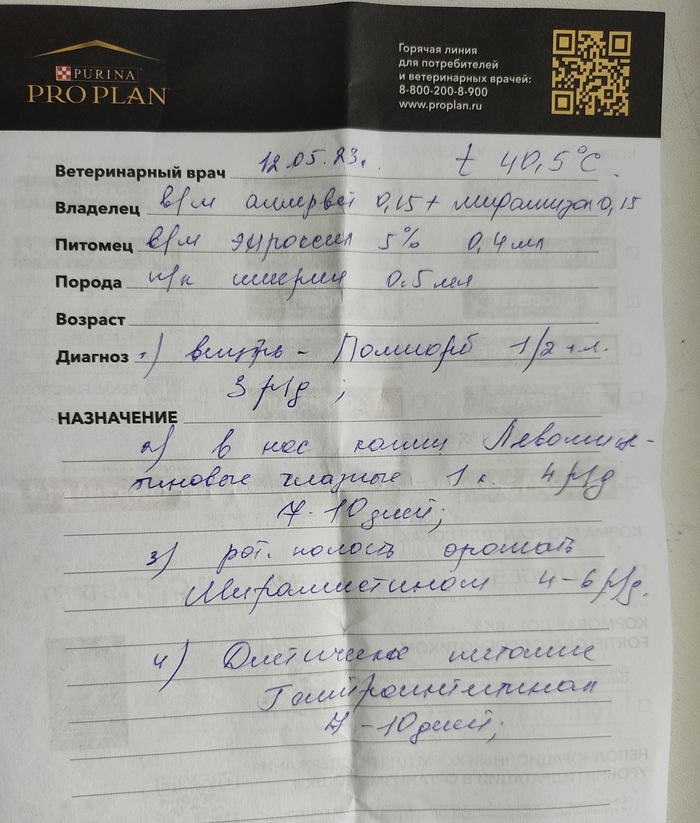 PURINA
PRO PLAN
Горячая линия
для потребителей
и ветеринарных врачей:
8-800-200-8-900
www.proplan.ru
Ветеринарный врач 12.05.23г. t 40,5°C.
Владелец в/м аллервет 0,15 + мифализол 0,15
Питомец в/м энроксил 5% 0,4 мл
Порода п/к 0.5 мл
Возраст
Диагноз 1) внутрь - Полисорб 1/2 ч.л.
3 р/д ;
НАЗНАЧЕНИЕ
2) в нос капли Левомице-
тиновые глазные 1 к. 4 р/д
7-10 дней;
3) рот. полость орошать
Мирамистином 4-6 р/д.
4) Диетическое питание
Гастроинтестинал
7-10 дней;